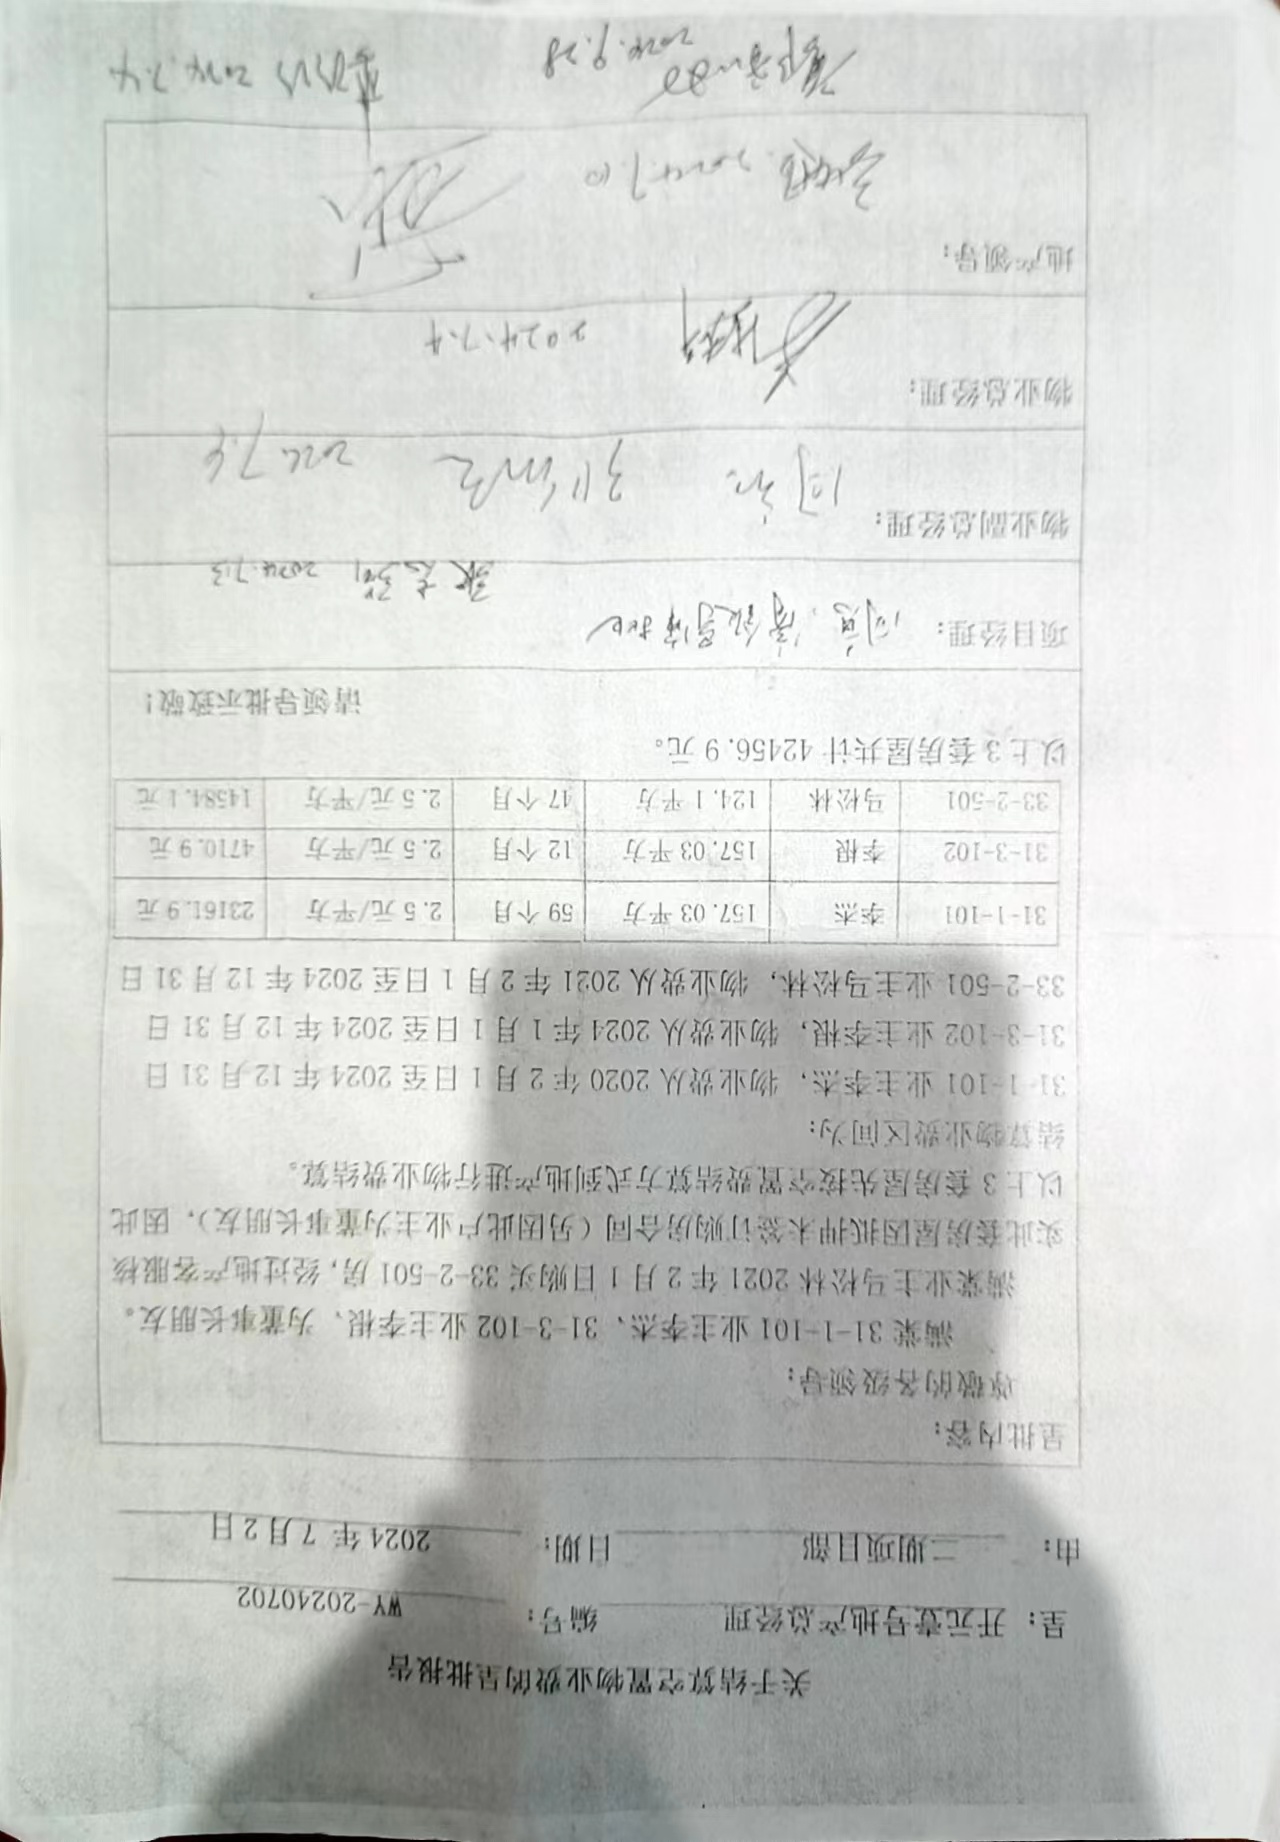 关于结算空置物业费的呈批报告
呈: 开元壹号地产总经理 编号: WY-20240702
由: 二期项目部 日期: 2024年7月2日
呈批内容:
尊敬的各级领导:
满棠 31-1-101 业主李杰、31-3-102 业主李根、为董事长朋友。
满棠业主马松林 2021 年 2 月 1 日购买 33-2-501 房,经过地产客服核
实此套房屋因抵押未签订购房合同(另因此户业主为董事长朋友),因此
以上 3 套房屋先按空置费结算方式到地产进行物业费结算。
结算物业费区间为:
31-1-101 业主李杰,物业费从 2020 年 2 月 1 日至 2024 年 12 月 31 日
31-3-102 业主李根,物业费从 2024 年 1 月 1 日至 2024 年 12 月 31 日
33-2-501 业主马松林,物业费从 2021 年 2 月 1 日至 2024 年 12 月 31 日
31-1-101 李杰 157.03 平方 59 个月 2.5 元/平方 23161.9 元
31-3-102 李根 157.03 平方 12 个月 2.5 元/平方 4710.9 元
33-2-501 马松林 124.1 平方 47 个月 2.5 元/平方 14584.1 元
以上 3 套房屋共计 42456.9 元。
请领导批示致敬!
项目经理: 同意,请领导审批
2024.7.3
物业副总经理: 同意
物业总经理:
2024.7.4
地产领导:
2024.7.10
2024.7.4